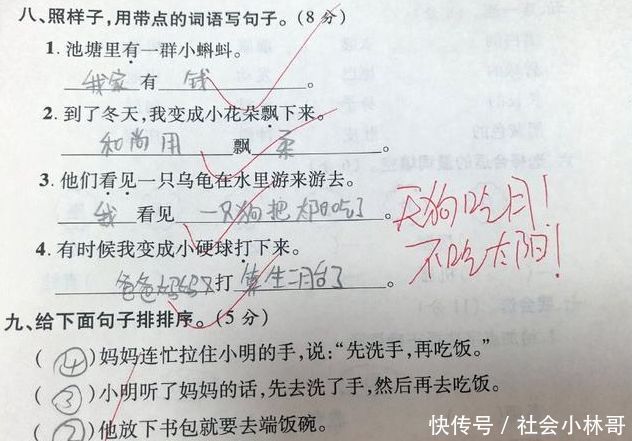 八、照样子，用带点的词语写句子。（8分）
1. 池塘里有一群小蝌蚪。
我家 有 钱 。
2. 到了冬天，我变成小花朵飘下来。
和尚用 飘柔 。
3. 他们看见一只乌龟在水里游来游去。
我 看见 一只狗把太阳吃了 。
天狗吃月！
不吃太阳！
4. 有时候我变成小硬球打下来。
爸爸妈妈又打 算生二月台了 。
九、给下面句子排排序。（5分）
（④）妈妈连忙拉住小明的手，说：“先洗手，再吃饭。”
（③）小明听了妈妈的话，先去洗了手，然后再去吃饭。
（②）他放下书包就要去端饭碗。
快传号／社会小林哥